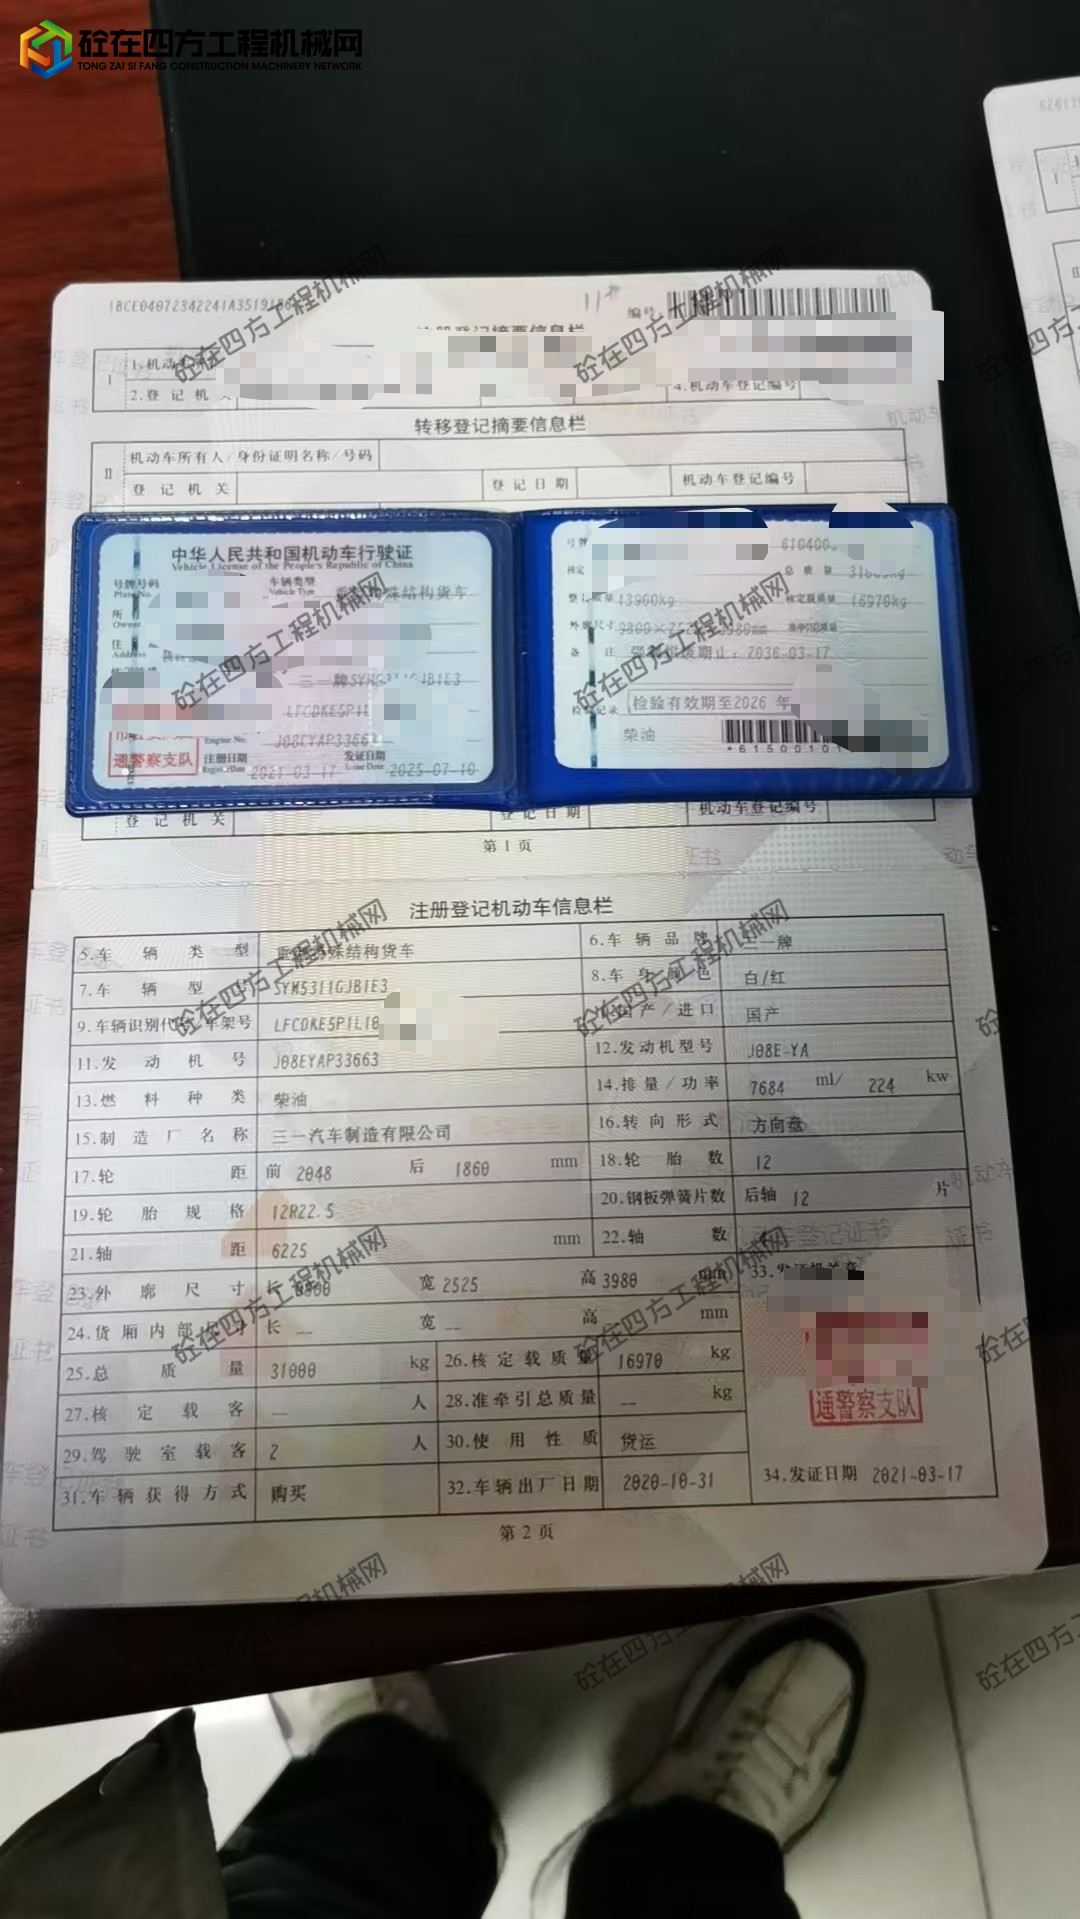 砼在四方工程机械网
TONG ZAI SI FANG CONSTRUCTION MACHINERY NETWORK
编号:
注册登记摘要信息栏
I
1.机动车所
2.登 记 机 关
4.机动车登记编号
转移登记摘要信息栏
II 机动车所有人/身份证明名称/号码
登 记 机 关 登 记 日 期 机动车登记编号
中华人民共和国机动车行驶证
Vehicle License of the People's Republic of China
号牌号码 车辆类型
Plate No. Vehicle Type 殊结构货车
所
Owner
住
Address
三一牌
LFCDKE5P1L
Engine No. J08EYAP33663
注册日期 2021-03-17 发证日期 2025-07-10
Register Date Issue Date
通警察支队
号牌 610400
核定 总 质 量
整备质量 13900kg 核定载质量 16970kg
外廓尺寸 准牵引总质量
备 注 强制报废期止: 2036-03-17
检验记录 检验有效期至2026 年
柴油
登 记 机 关 登 记 日 期 机动车登记编号
第 1 页
注册登记机动车信息栏
5.车 辆 类 型 重型特殊结构货车 6.车 辆 品 牌 三一牌
7.车 辆 型 号 SYM5311GJB1E3 8.车 身 颜 色 白/红
9.车辆识别代号/车架号 LFCDKE5P1L10 10.国产/进口 国产
11.发 动 机 号 J08EYAP33663 12.发动机型号 J08E-YA
13.燃 料 种 类 柴油 14.排量/功率 7684 ml/ 224 kw
15.制 造 厂 名 称 三一汽车制造有限公司 16.转 向 形 式 方向盘
17.轮 距 前 2048 后 1860 mm 18.轮 胎 数 12
19.轮 胎 规 格 12R22.5 20.钢板弹簧片数 后轴 12 片
21.轴 距 6225 mm 22.轴 数 4
23.外 廓 尺 寸 长 9800 宽 2525 高 3980 mm 33.发证机关章
24.货厢内部尺寸 长 __ 宽 __ 高 mm
25.总 质 量 31000 kg 26.核 定 载 质 量 16970 kg
27.核 定 载 客 __ 人 28.准牵引总质量 __ kg
通警察支队
29.驾 驶 室 载 客 2 人 30.使 用 性 质 货运
31.车 辆 获 得 方 式 购买 32.车辆出厂日期 2020-10-31 34.发证日期 2021-03-17
第 2 页